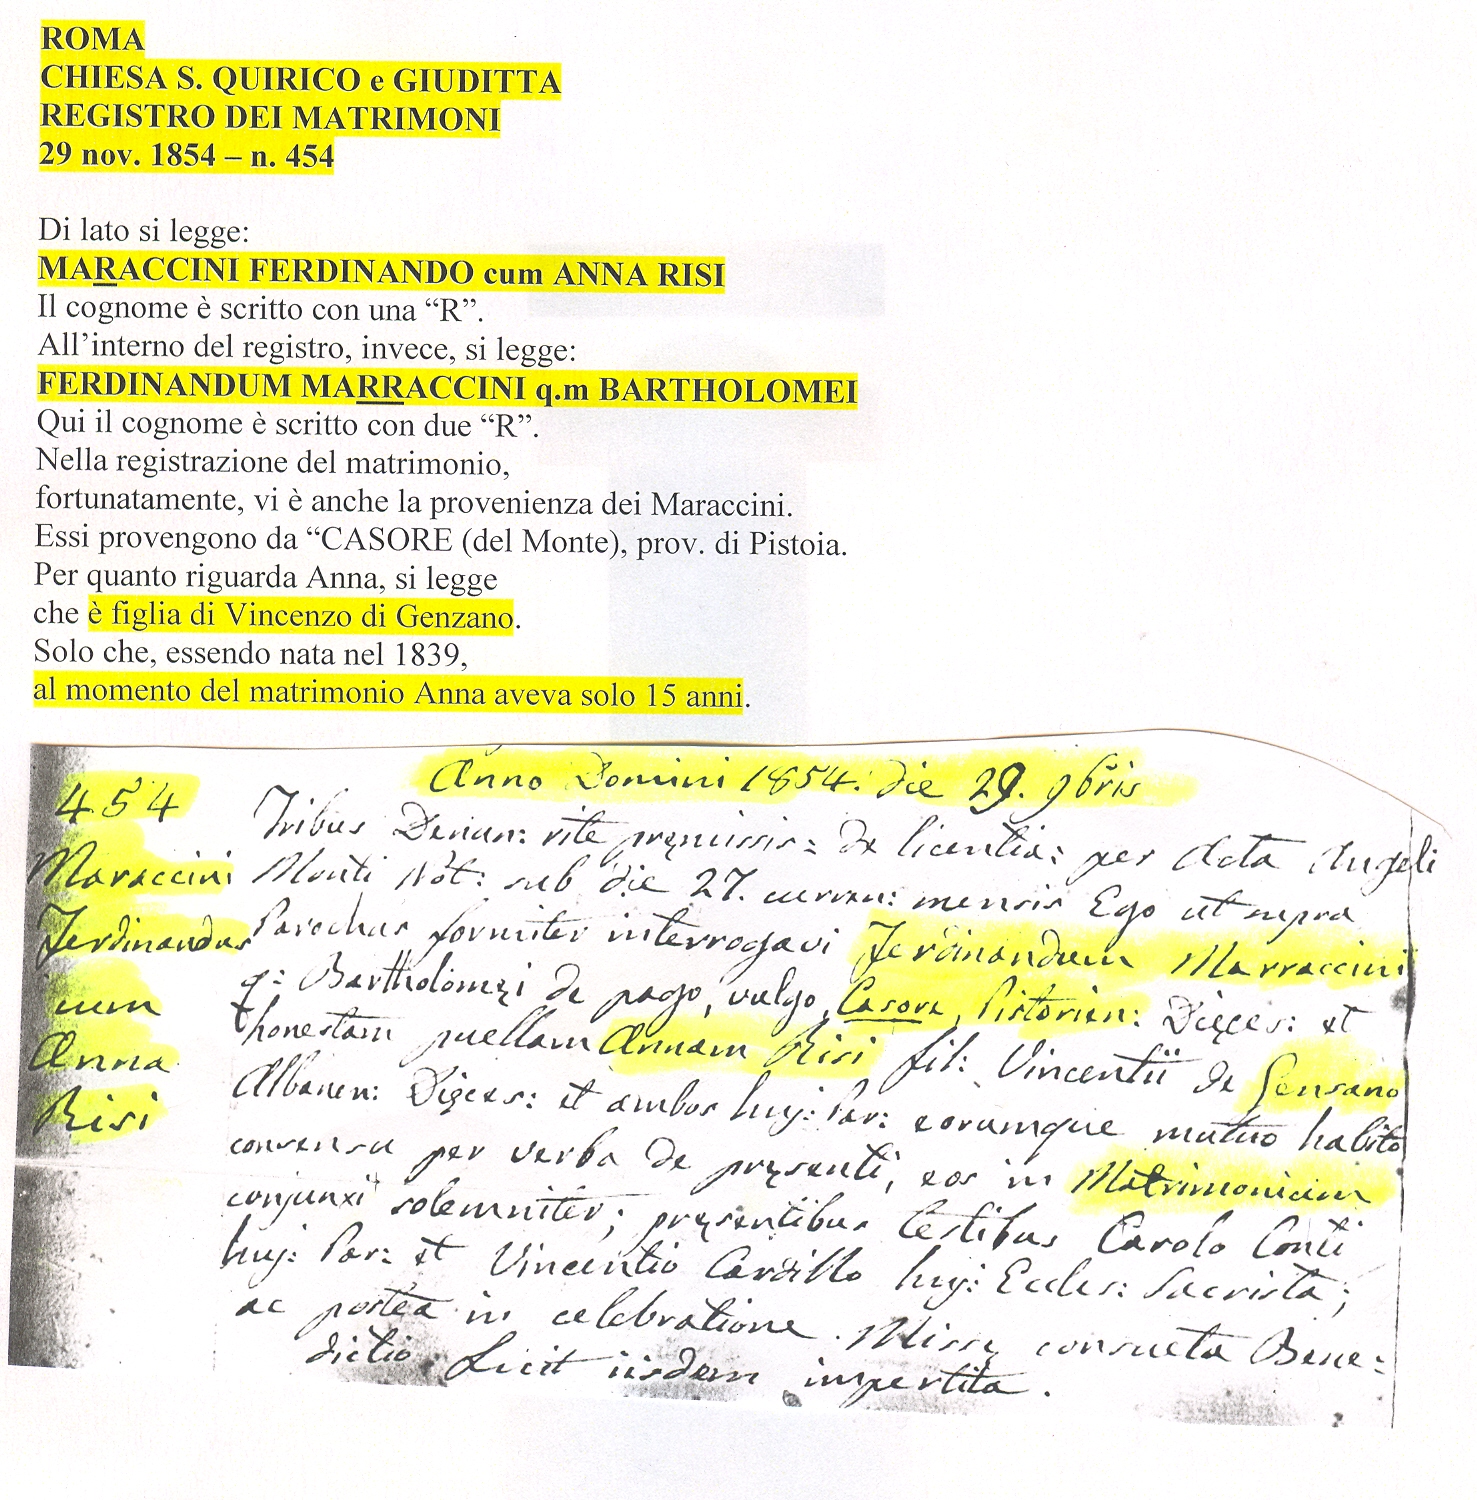 ROMA
CHIESA S. QUIRICO e GIUDITTA
REGISTRO DEI MATRIMONI
29 nov. 1854 – n. 454
Di lato si legge:
MARACCINI FERDINANDO cum ANNA RISI
Il cognome è scritto con una “R”.
All’interno del registro, invece, si legge:
FERDINANDUM MARRACCINI q.m BARTHOLOMEI
Qui il cognome è scritto con due “R”.
Nella registrazione del matrimonio,
fortunatamente, vi è anche la provenienza dei Maraccini.
Essi provengono da “CASORE (del Monte), prov. di Pistoia.
Per quanto riguarda Anna, si legge
che è figlia di Vincenzo di Genzano.
Solo che, essendo nata nel 1839,
al momento del matrimonio Anna aveva solo 15 anni.
Anno Domini 1854. die 29. 9bris
454
Maraccini
Ferdinandus
cum
Anna
Risi
Tribus Denun: rite pręmissis: de licentia: per Acta Angeli
Monti Not: sub die 27. curren: mensis Ego ut supra
Parochus formiter interrogavi Ferdinandum Marraccini
q: Bartholomęi de pago, vulgo, Casore, Pistorien: Dięces: et
honestam puellam Annam Risi fil: Vincentii de Gensano
Albanen: Dięces: et ambos huj: Par: eorumque mutuo habito
consensu per verba de pręsenti, eos in Matrimonium
conjunxi solemniter; pręsentibus testibus Carolo Conti
huj: Par: et Vincentio Cardillo huj: Eccles: Sacrista;
ac postea in celebratione Missę consueta Bene=
dictio fuit iisdem impertita.